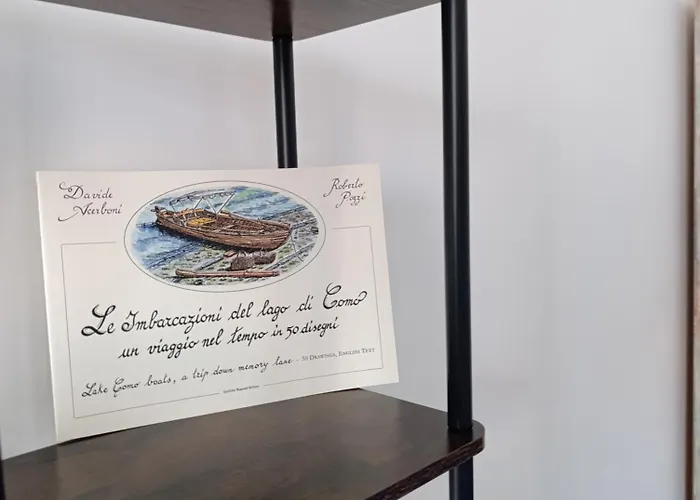 Davide
Acerboni
Roberto
Pozzi
Le Imbarcazioni del lago di Como
un viaggio nel tempo in 50 disegni
Lake Como boats, a trip down memory lane - 50 Drawings, English Text